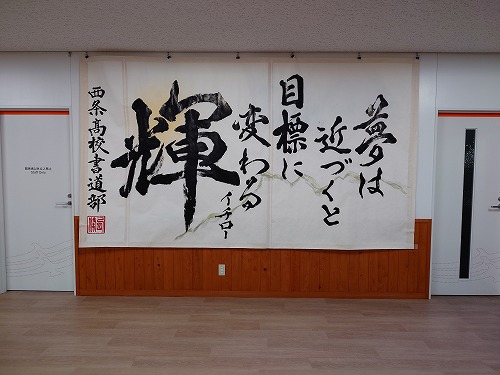 夢は
近づくと
目標に
変わる
イチロー
輝
西条高校書道部
Staff Only